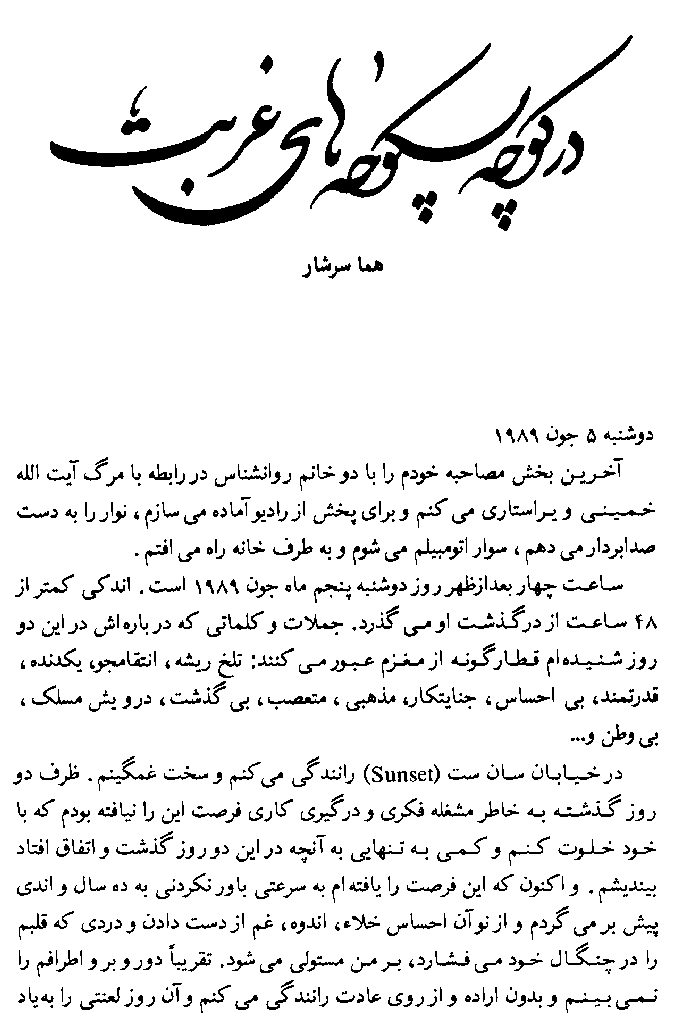 در کوچه پسکوچه های غربت
هما سرشار
دوشنبه ۵ جون ۱۹۸۹
آخرین بخش مصاحبه خودم را با دو خانم روانشناس در رابطه با مرگ آیت الله
خمینی ویراستاری می کنم و برای پخش از رادیو آماده می سازم، نوار را به دست
صدابردار می دهم، سوار اتومبیلم می شوم و به طرف خانه راه می افتم.
ساعت چهار بعدازظهر روز دوشنبه پنجم ماه جون ۱۹۸۹ است. اندکی کمتر از
۴۸ ساعت از درگذشت او می گذرد. جملات و کلماتی که درباره اش در این دو
روز شنیده ام قطارگونه از مغزم عبور می کنند: تلخ ریشه، انتقامجو، یکدنده،
قدرتمند، بی احساس، جنایتکار، مذهبی، متعصب، بی گذشت، درویش مسلک،
بی وطن و...
در خیابان سان ست (Sunset) رانندگی می کنم و سخت غمگینم. ظرف دو
روز گذشته به خاطر مشغله فکری و درگیری کاری فرصت این را نیافته بودم که با
خود خلوت کنم و کمی به تنهایی به آنچه در این دو روز گذشت و اتفاق افتاد
بیندیشم. و اکنون که این فرصت را یافته ام به سرعتی باور نکردنی به ده سال و اندی
پیش بر می گردم و از نو آن احساس خلاء، اندوه، غم از دست دادن و دردی که قلبم
را در چنگال خود می فشارد، بر من مستولی می شود. تقریباً دور و بر و اطرافم را
نمی بینم و بدون اراده و از روی عادت رانندگی می کنم و آن روز لعنتی را به یاد